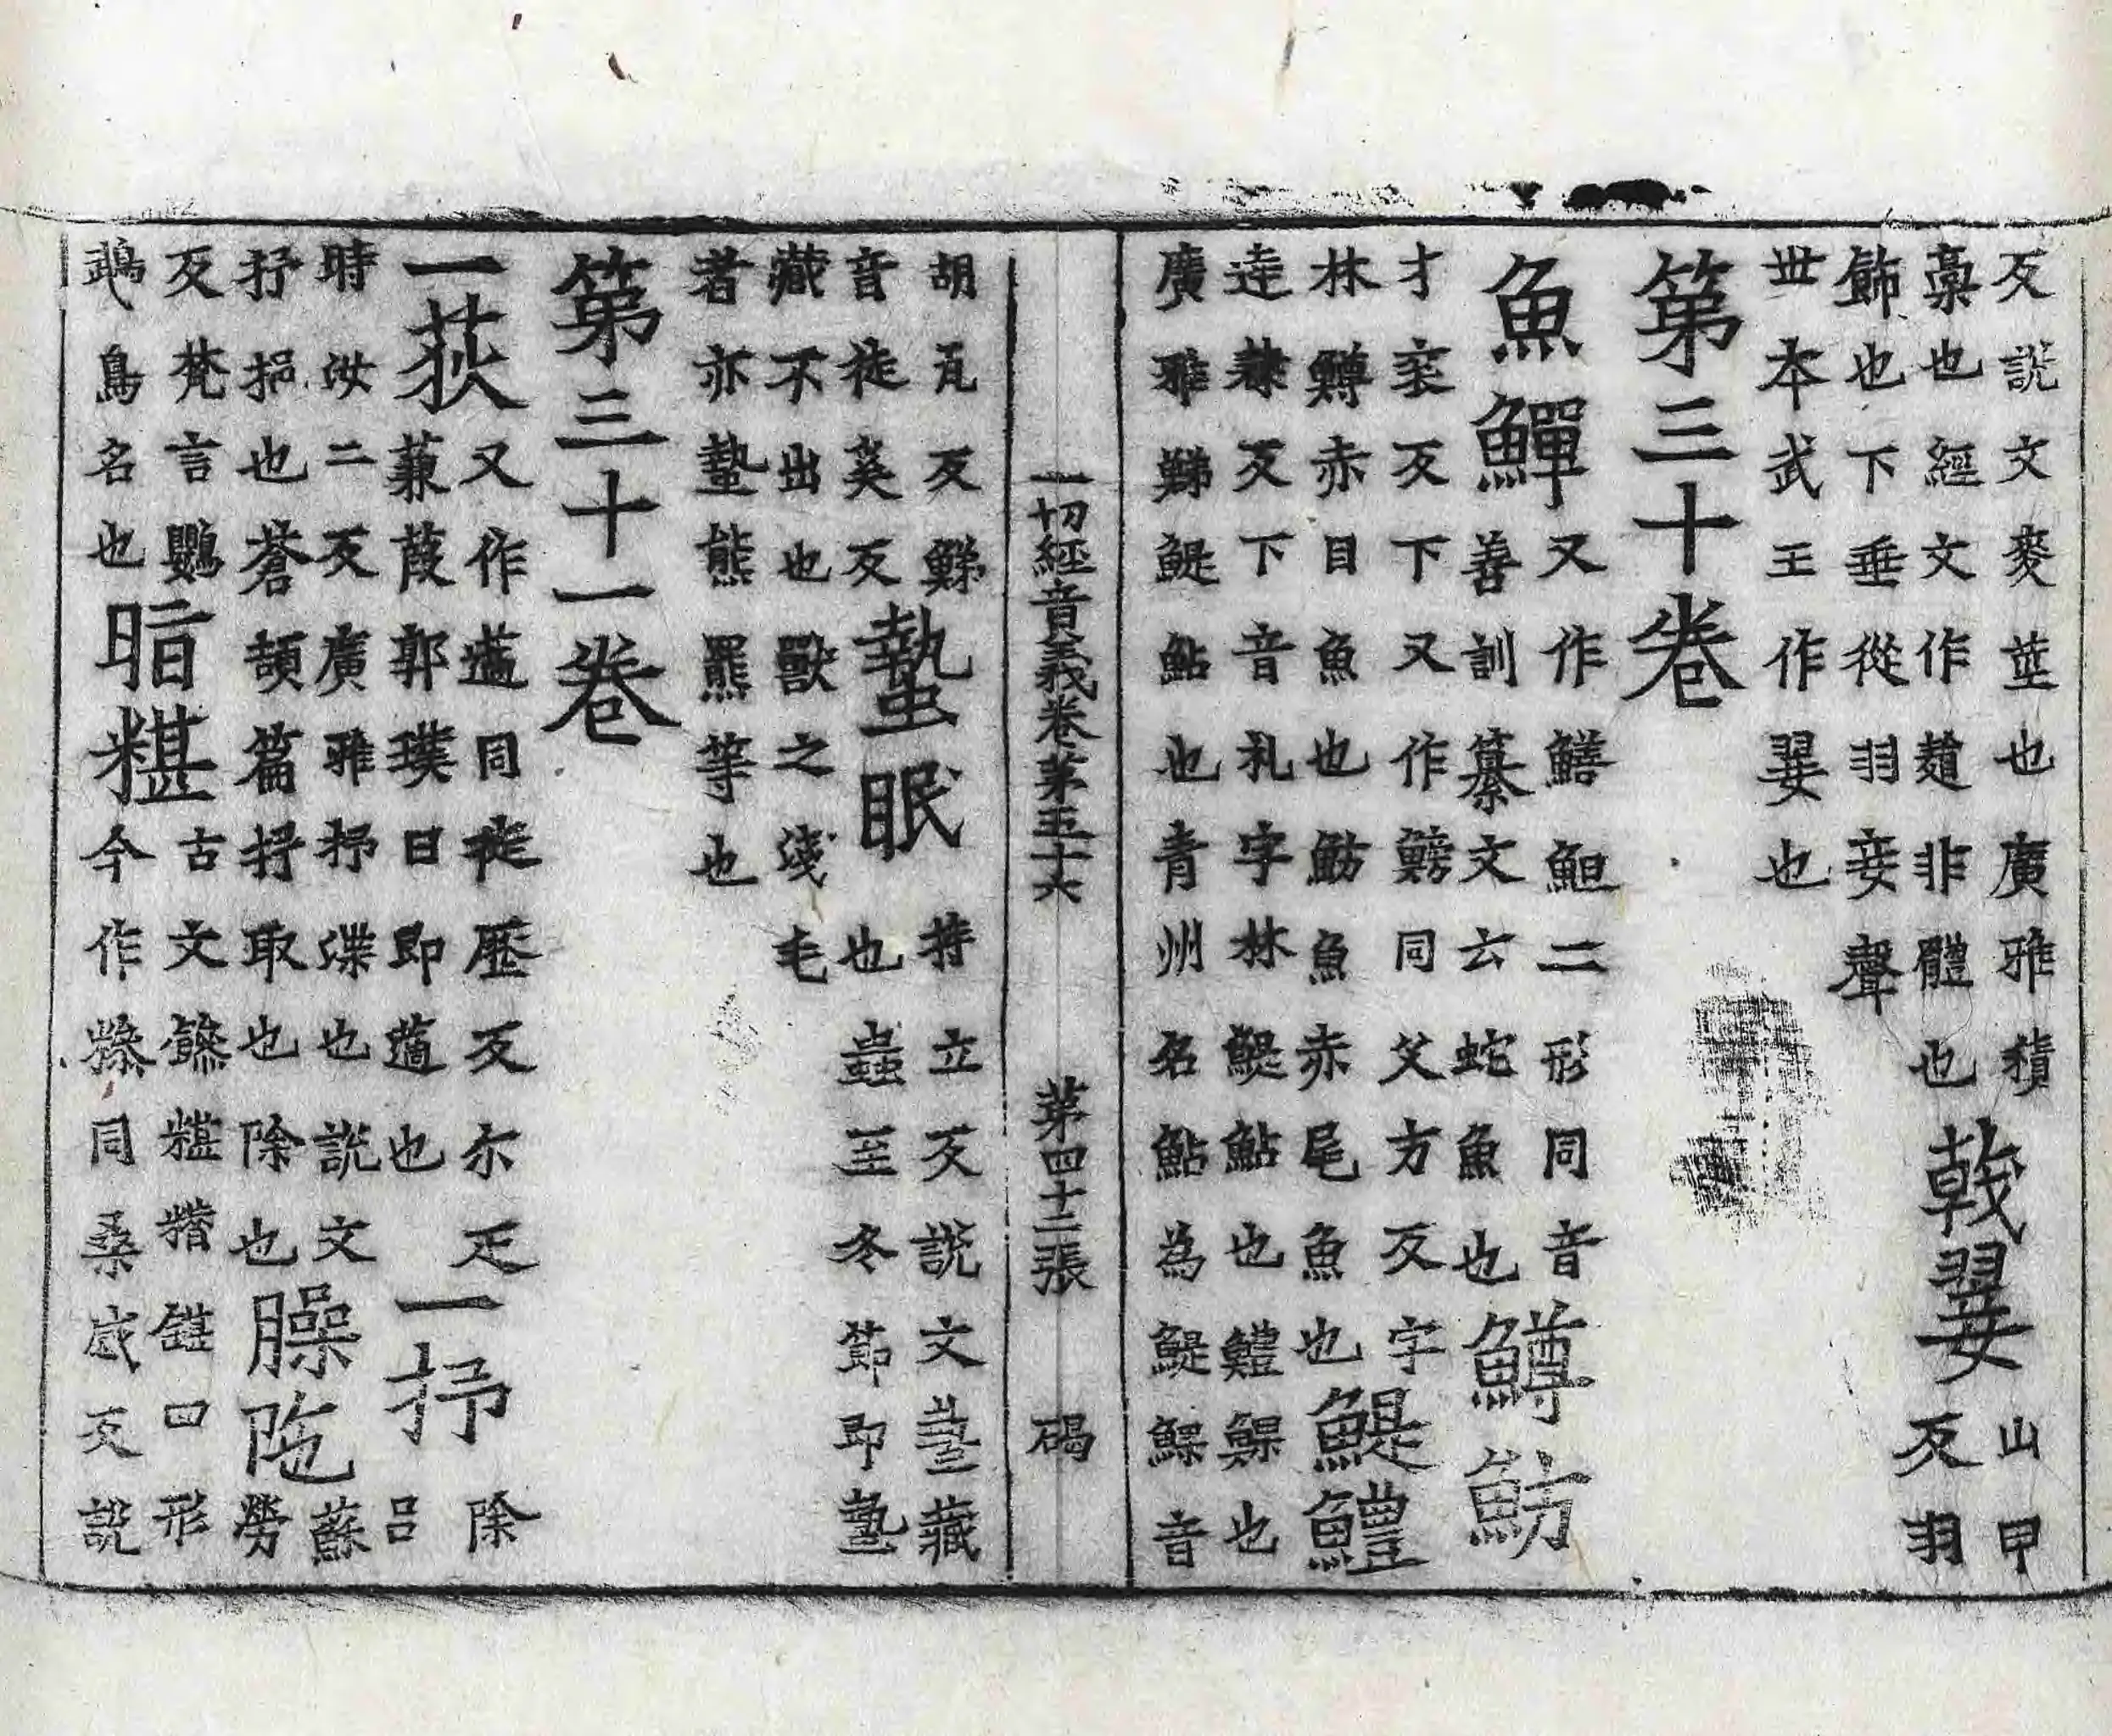 反説文麥莖也廣雅積
稾也經文作𧼮非體也戟翣山甲
反羽
飾也下垂從羽妾聲
世本武王作翣也
第三十卷
魚鱓又作鱔䱇二形同音
善訓纂文云蛇魚也鱒魴
才衮反下又作鰟同父方反字
林鱒赤目魚也魴魚赤尾魚也鯷鱧
達隸反下音礼字林鯷鮎也鱧也
廣雅鮷鯷鮎也青州名鮎為鯷音
一切經音義卷第五十六 第四十二張 碣
胡瓦反鮷
音徒奚反蟄眠持立反説文蟄藏
也蟲至冬節即蟄
藏不出也獸之淺毛
者亦蟄熊羆等也
第三十一卷
一荻又作藡同徒歷反尔疋
蒹葭郭璞曰即藡也一抒除
呂
時汝二反廣雅抒渫也説文
抒挹也蒼頡篇抒取也除也臊陁蘇
勞
反梵言鸚
鵡鳥名也暗糂古文糂口形
今作糝同桑感反説